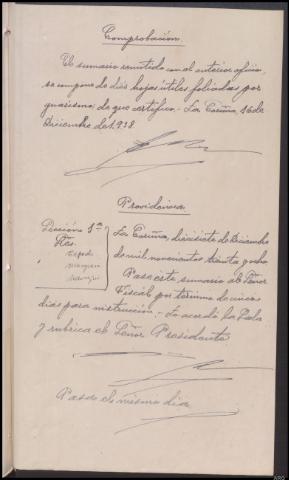 Comprobación.
El sumario remitido con el anterior oficio
se compone de diez hojas útiles foliadas por
guarismo de que certifico.- La Coruña, 16 de
Diciembre de 1.938.
Providencia
Sección 1ª
Sres.
La Coruña, diecisiete de Diciembre
de mil novecientos treinta y ocho
Pase este sumario al Señor
Fiscal por termino de cinco
dias para instrucción.- Lo acordó la Sala
y rubrica el Señor Presidente
Pasa el mismo dia